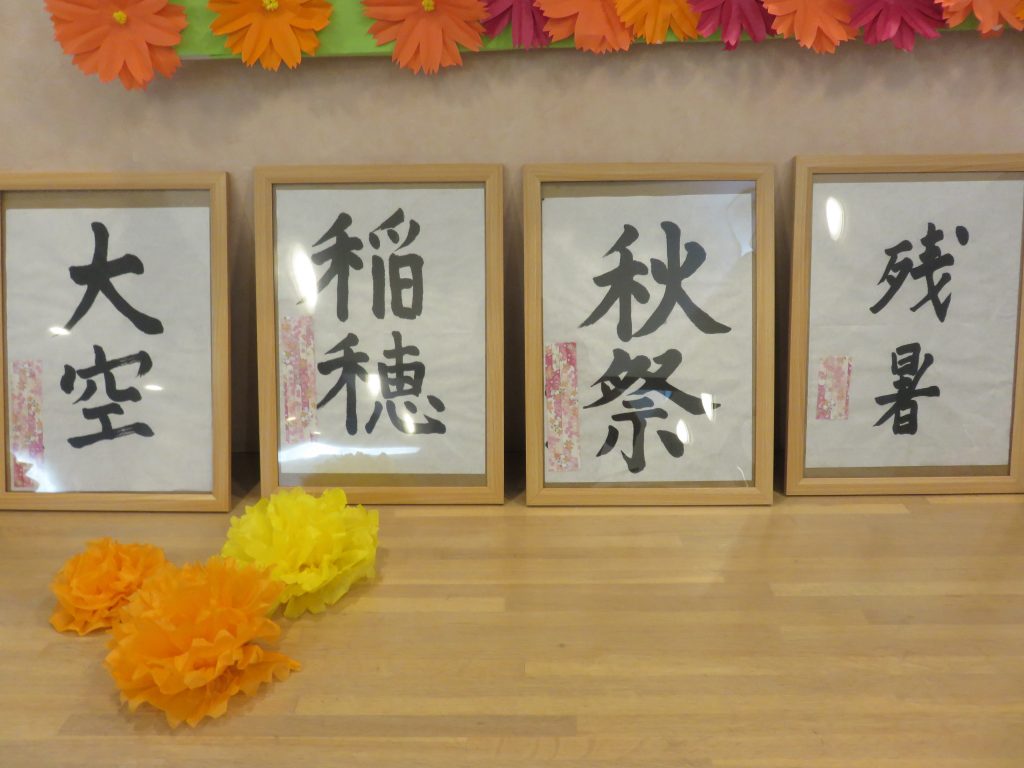 大空
稲穂
秋祭
残暑